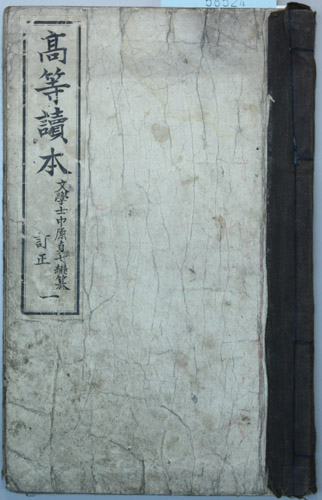 高等讀本
文學士中原貞七編纂
訂正 一
58524